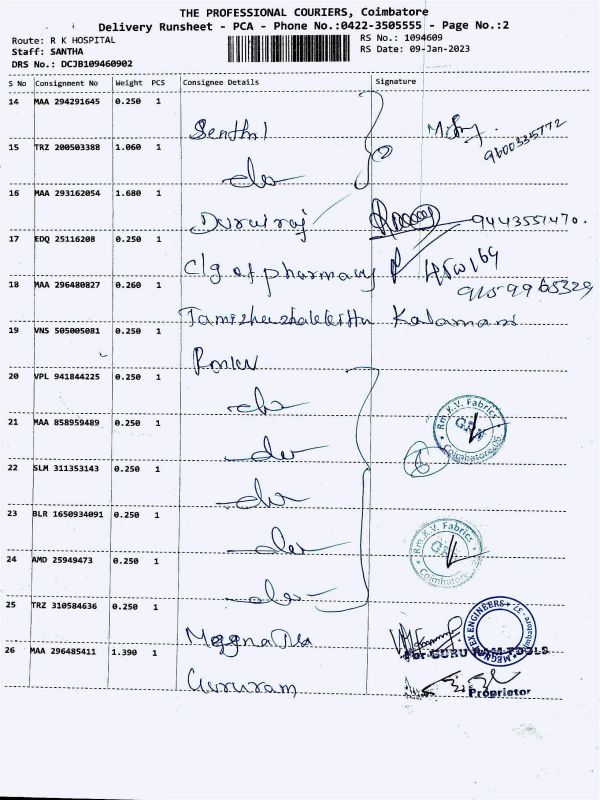 THE PROFESSIONAL COURIERS, Coimbatore
Delivery Runsheet - PCA - Phone No.:0422-3505555 - Page No.:2
Route: R K HOSPITAL
RS No.: 1094609
Staff: SANTHA
RS Date: 09-Jan-2023
DRS No.: DCJB109460902
S No Consignment No Weight PCS Consignee Details Signature
14 MAA 294291645 0.250 1
Senthil
9600335772
15 TRZ 200503388 1.060 1
16 MAA 293162054 1.680 1
Durairaj
9443551470.
17 EDQ 25116208 0.250 1
Clg of pharmacy
18 MAA 296480827 0.260 1
9159965329
Kalamani
19 VNS 505005081 0.250 1
Rmkv
20 VPL 941844225 0.250 1
Rm.K.V. Fabrics
Coimbatore
21 MAA 858959489 0.250 1
6
22 SLM 311353143 0.250 1
23 BLR 1650934091 0.250 1
Rm K.V. Fabrics
Coimbatore
24 AMD 25949473 0.250 1
25 TRZ 310584636 0.250 1
MEGNATEX ENGINEERS
Coimbatore - 37.
26 MAA 296485411 1.390 1
For GURU RAM TOOLS
Gururam
Proprietor